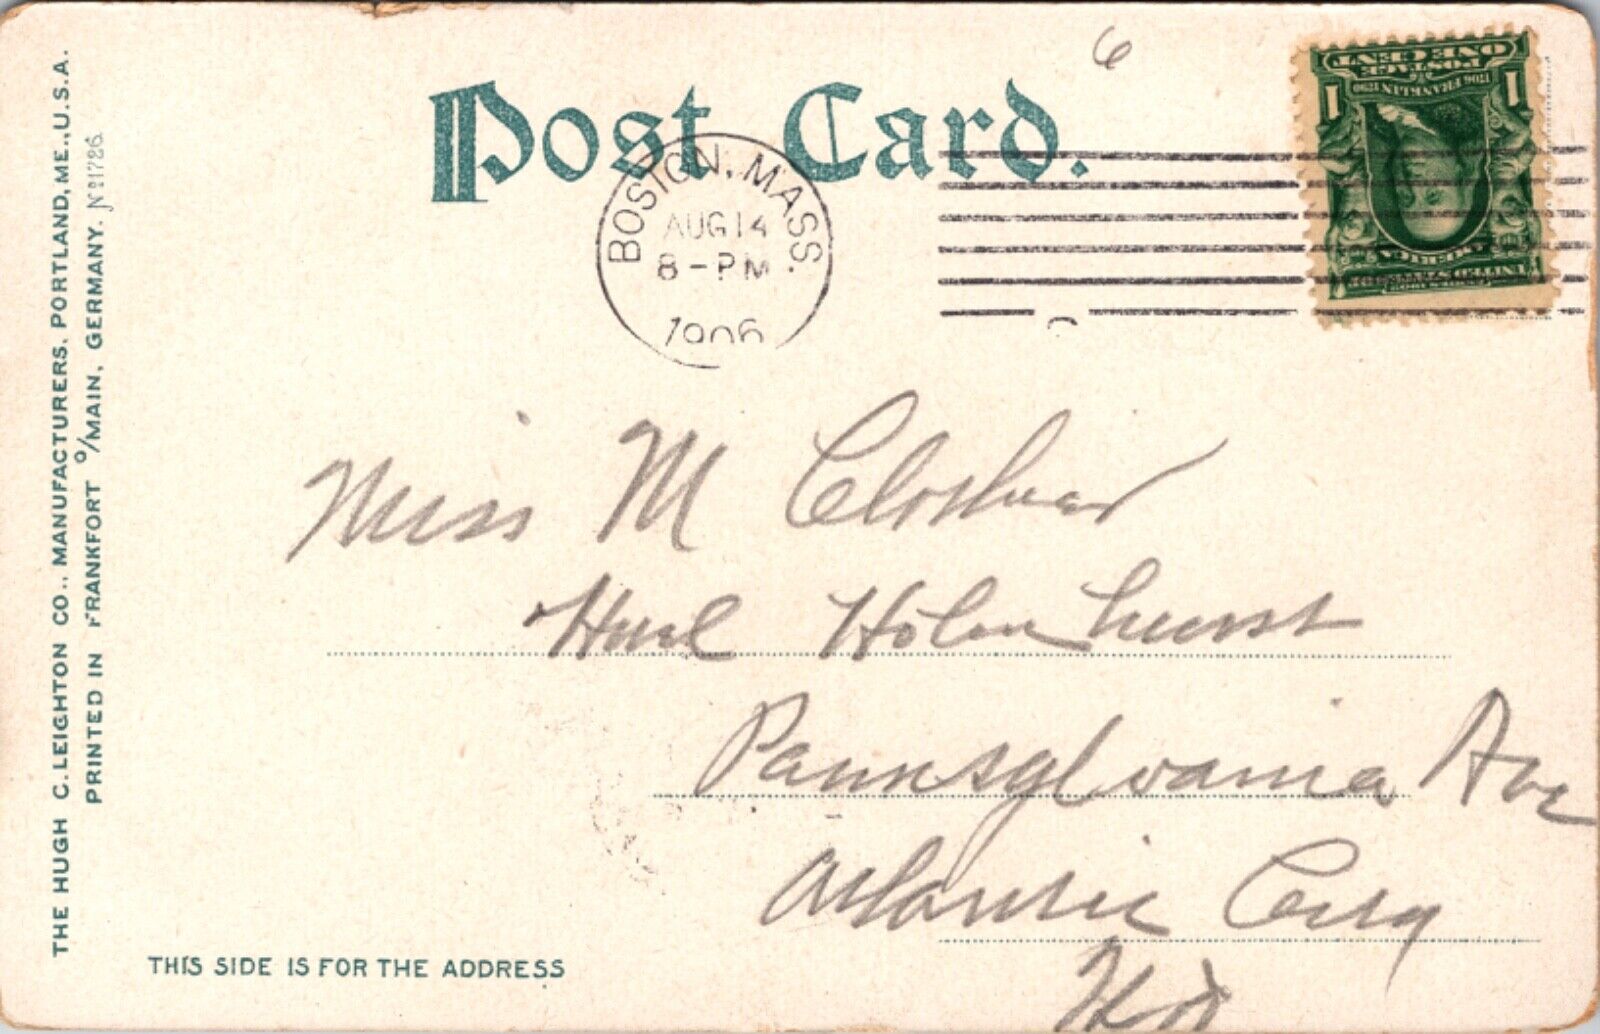 6
Post Card.
BOSTON, MASS.
AUG 14
8-PM
1906
ONE CENT
POSTAGE
1706 FRANKLIN 1790
1 1
UNITED STATES OF
AMERICA
Miss M Clothier
Hotel Holmhurst
Pennsylvania Ave
Atlantic City
THIS SIDE IS FOR THE ADDRESS
THE HUGH C. LEIGHTON CO., MANUFACTURERS, PORTLAND, ME., U.S.A.
PRINTED IN FRANKFORT o/MAIN, GERMANY. No 1786